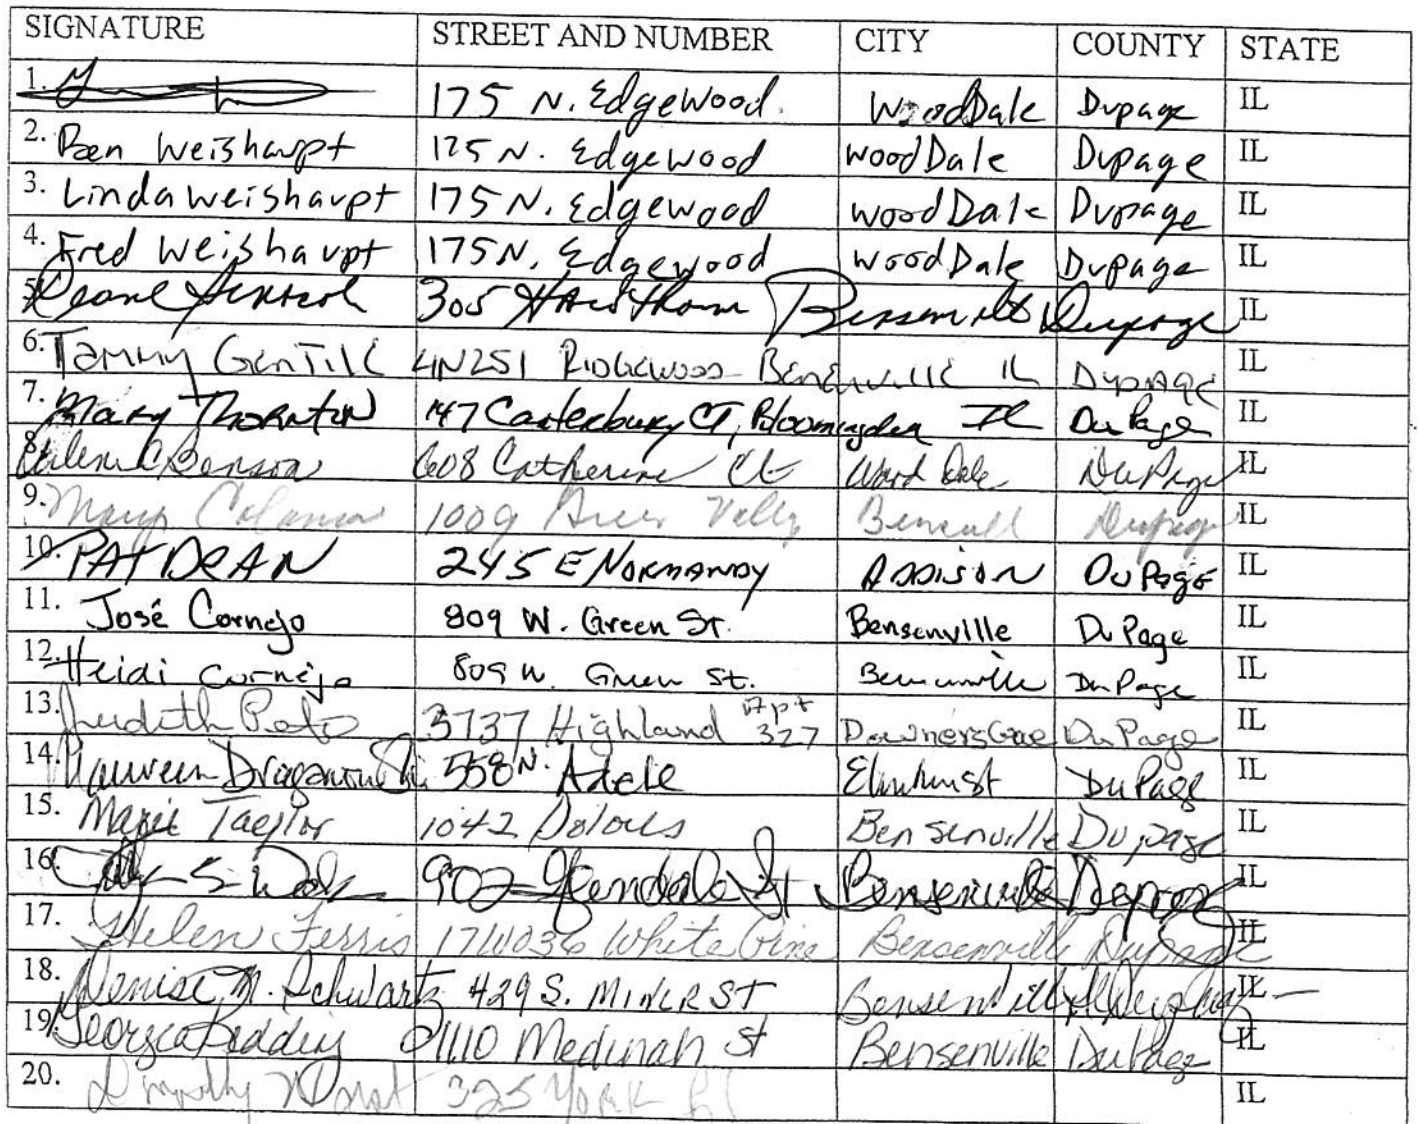 SIGNATURE STREET AND NUMBER CITY COUNTY STATE
1. 175 N. Edgewood. WoodDale Dupage IL
2. Ben Weishaupt 175 N. Edgewood WoodDale Dupage IL
3. Linda Weishaupt 175 N. Edgewood WoodDale Dupage IL
4. Fred Weishaupt 175 N. Edgewood WoodDale Dupage IL
5. 305 Hawthorne Dupage IL
6. Tammy Gentile 4N251 Ridgewood Bensenville IL Dupage IL
7. Mary Thornton 147 Canterbury CT, Bloomingdale IL DuPage IL
8. Benson 608 Catherine Ct Wood Dale DuPage IL
9. Mary 1009 Dupage IL
10. PAT DEAN 245 E NORMANDY ADDISON DuPage IL
11. José Cornejo 809 W. Green St. Bensenville DuPage IL
12. Heidi Cornejo 809 W. Green St. Bensenville DuPage IL
13. Judith 3737 Highland Apt 327 DuPage IL
14. Maureen 558 N. Adele Elmhurst DuPage IL
15. Taylor 1042 Bensenville Dupage IL
16. 902 Glendale St Bensenville Dupage IL
17. Helen Ferris 17W036 White Pine Bensenville Dupage IL
18. Denise M. Schwartz 429 S. MINER ST Bensenville IL
19. Georgia 1110 Medinah St Bensenville DuPage IL
20. 325 York Rd IL